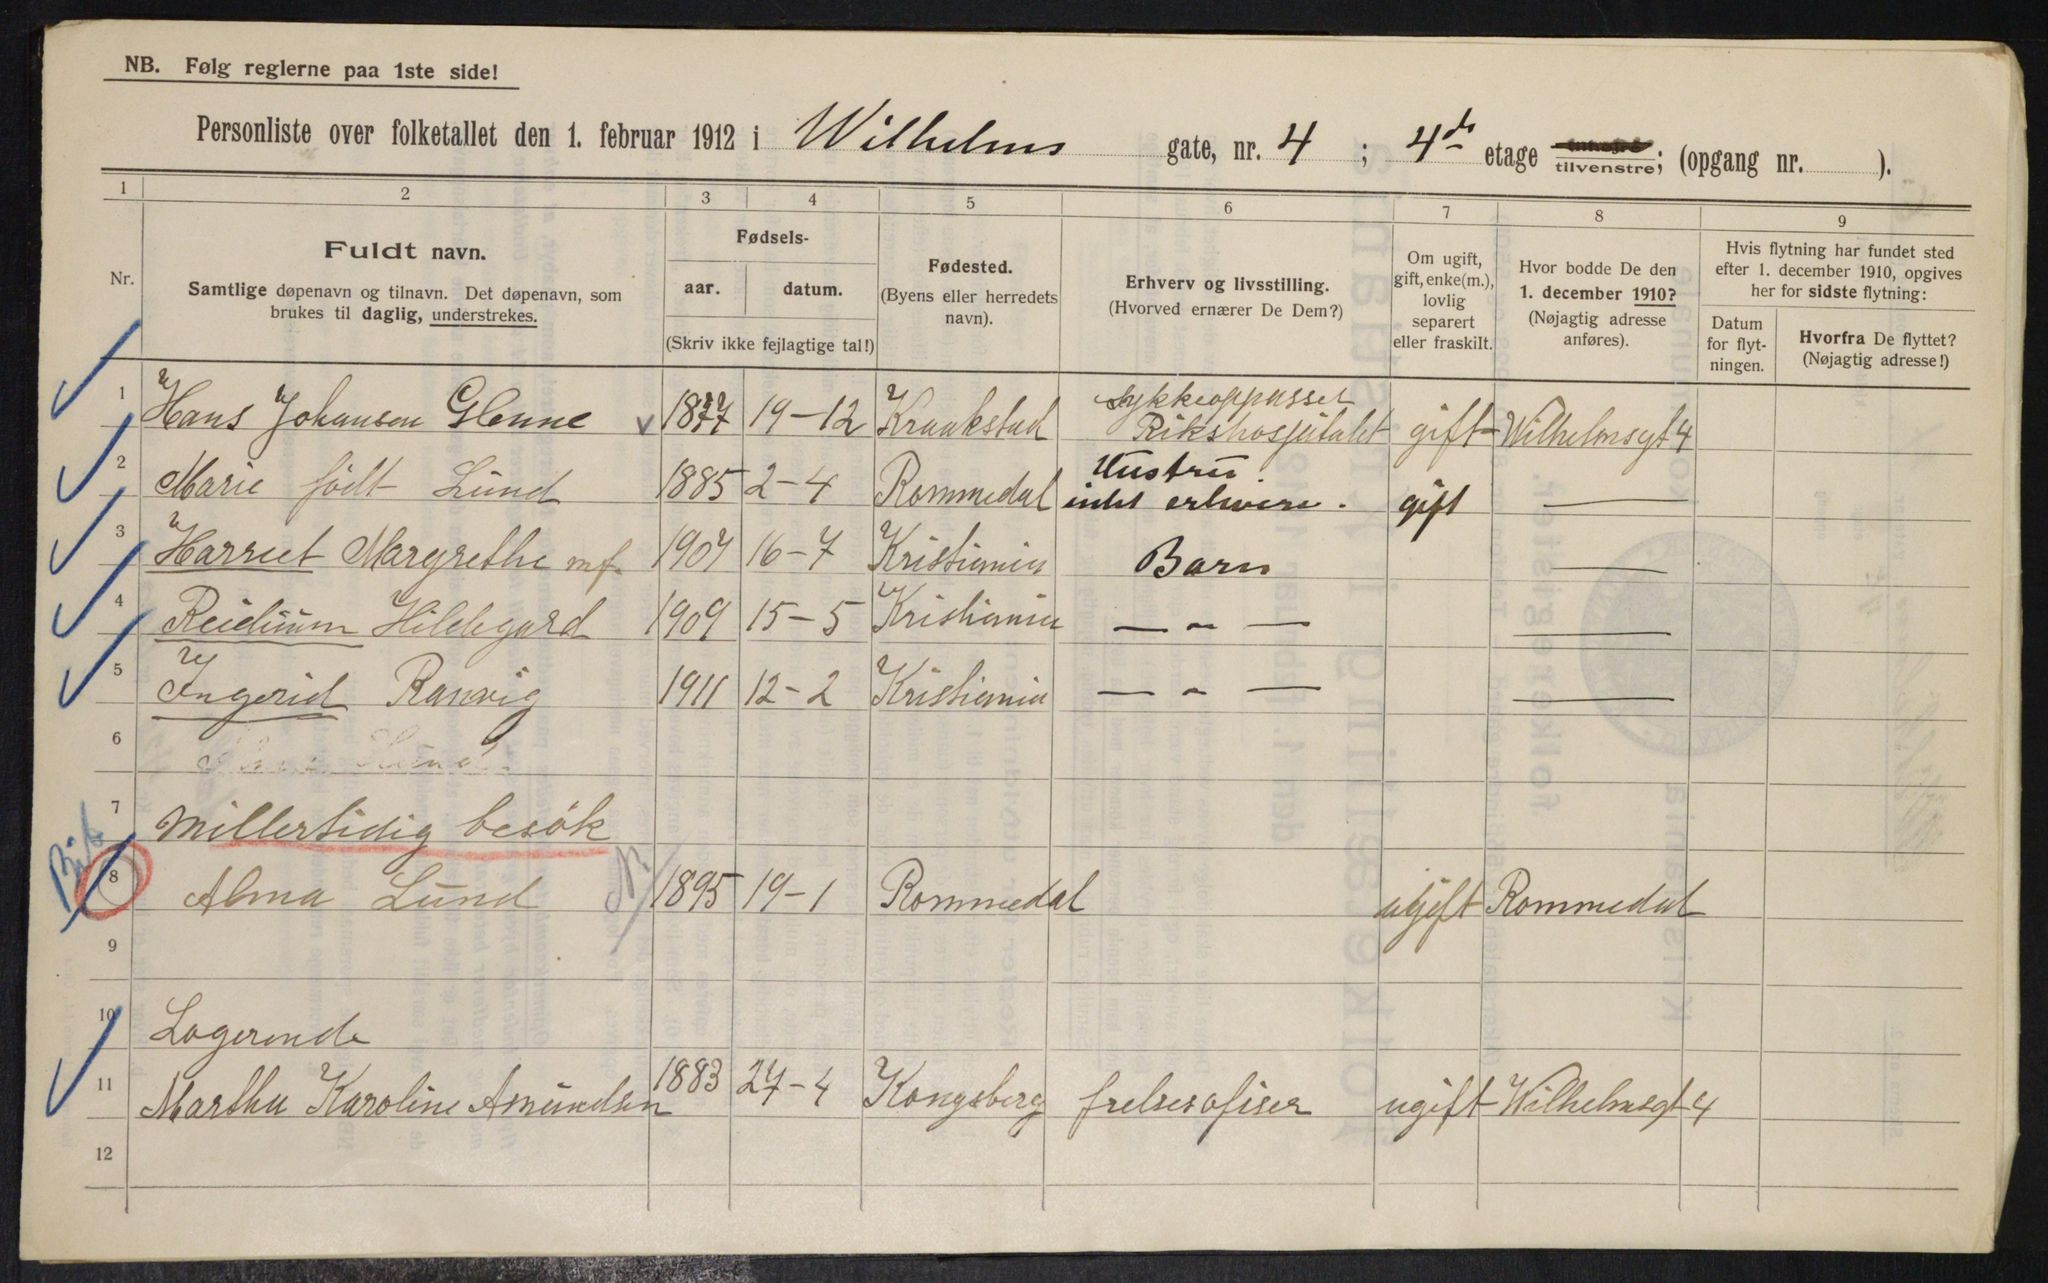 NB. Følg reglerne paa 1ste side!
Personliste over folketallet den 1. februar 1912 i Wilhelms gate, nr. 4 ; 4de etage tilvenstre; (opgang nr. ).
1 2 3 4 5 6 7 8 9
Nr.
Fuldt navn.
Samtlige døpenavn og tilnavn. Det døpenavn, som
brukes til daglig, understrekes.
Fødsels-
aar. datum.
(Skriv ikke fejlagtige tal!)
Fødested.
(Byens eller herredets
navn).
Erhverv og livsstilling.
(Hvorved ernærer De Dem?)
Om ugift,
gift, enke(m.),
lovlig
separert
eller fraskilt.
Hvor bodde De den
1. december 1910?
(Nøjagtig adresse
anføres).
Hvis flytning har fundet sted
efter 1. december 1910, opgives
her for sidste flytning:
Datum
for flyt-
ningen.
Hvorfra De flyttet?
(Nøjagtig adresse!)
1 Hans Johansen Glenne 1877 19-12 Kraakstad Sykkeoppasser Rikshospitalet gift Wilhelmsgt 4
2 Marie født Lund 1885 2-4 Rommedal Hustru intet erhverv. gift —
3 Harriet Margrethe mf. 1907 16-7 Kristiania Barn —
4 Reidunn Hildegard 1909 15-5 Kristiania — „ — —
5 Ingerid Ranvig 1911 12-2 Kristiania — „ — —
6 Lund
7 Millertidig besøk
8 Alma Lund 1895 19-1 Rommedal ugift Rommedal
9
10 Logerende
11 Martha Karoline Amundsen 1883 27-4 Kongsberg frelsesofiser ugift Wilhelmsgt 4
12